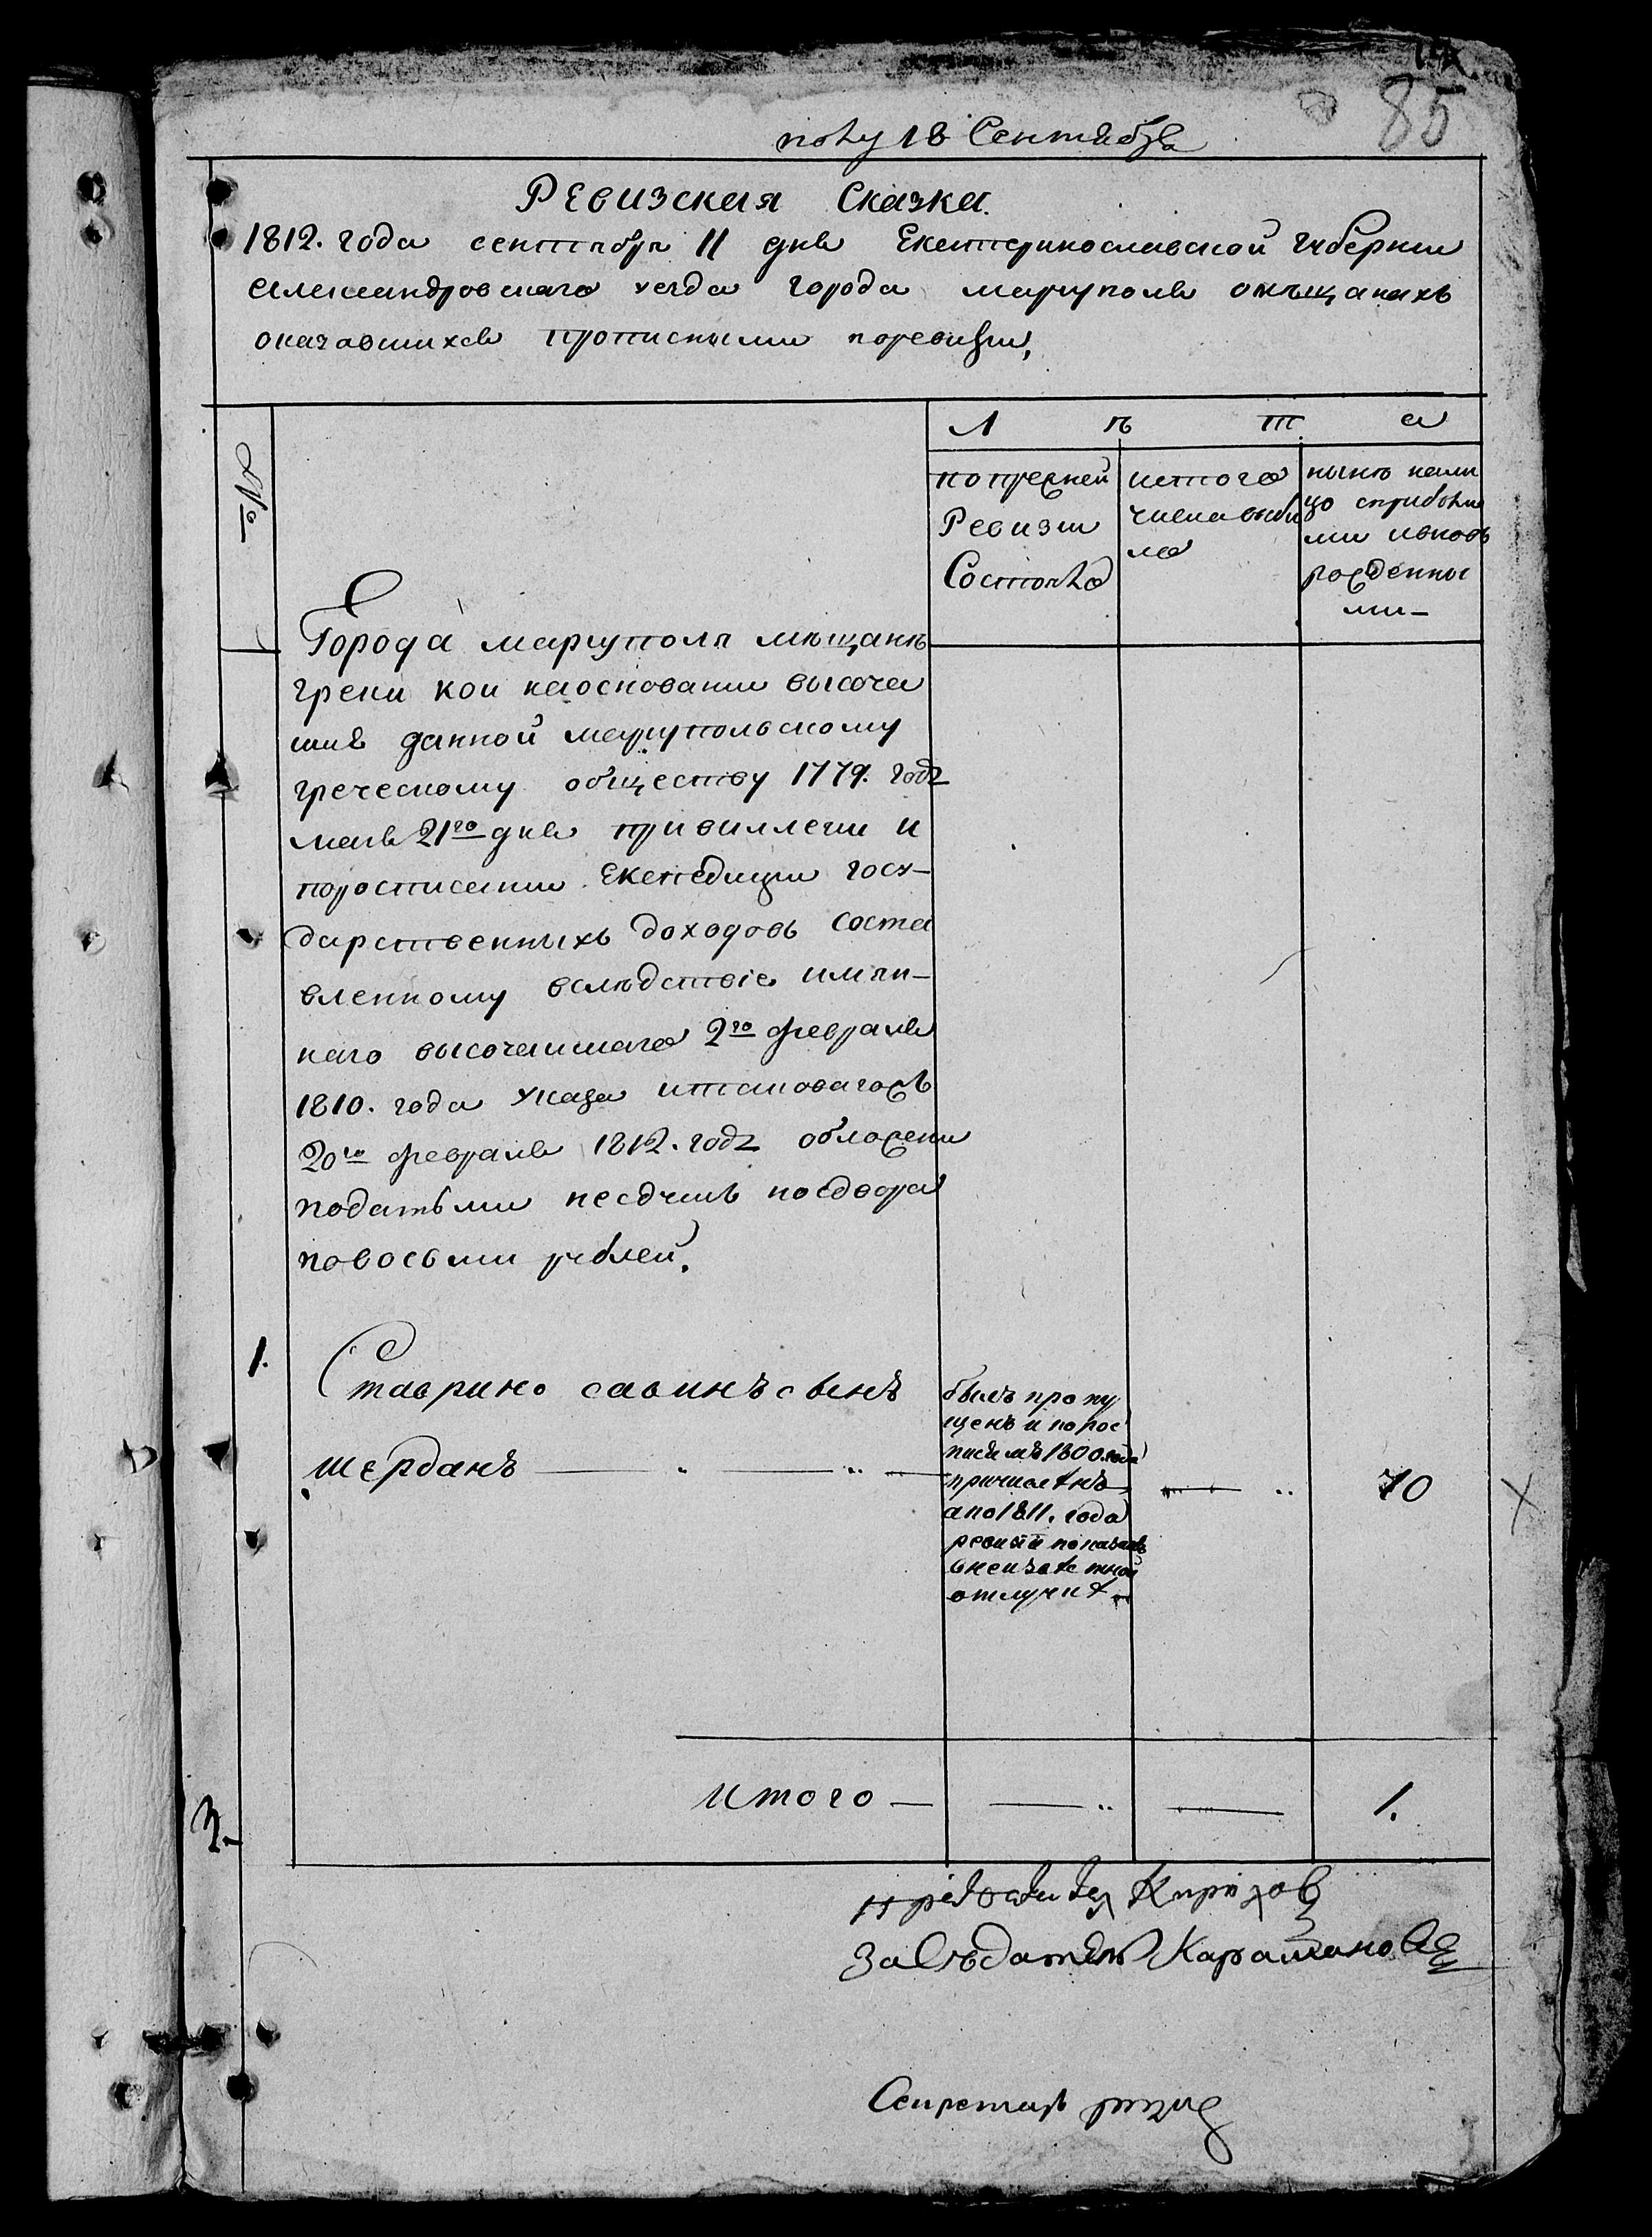 85
полу 18 Сентября
Ревизская Сказка.
1812. года сентября 11 дня Екатеринославской губернии
Александровскаго уезда города мариуполя омещанахъ
оказавшихся прописными поревизии,
№
Л ѣ т а
попрежней
Ревизии
Состояло
истого
числа выбы
ло
нынѣ нали
цо сприбылы
ми ивновь
рожденны
ми-
Города мариуполя мѣщанѣ
греки кои наосновании высоча
шив данной мариупольскому
греческому обществу 1779. года
маия 21го дня привиллегии и
поросписании Експедиции госу-
дарственныхъ доходовъ соста
вленному вслѣдствіе имян-
наго высочаишаго 2го февраля
1810. года указа итаковагожъ
20го февраля 1812. года обложени
податьми несдушъ носдвора
повосьми рублей.
1.
Ставрино савинъ сынъ
шерданъ
былъ пропу
щенъ и порос
писямъ 1800 года
причисленъ
апо1811. года
ревизіи показанъ
внеизвестной
отлучке
70
Итого - 1.
3.
Заседатель Карачинов
Секретарь